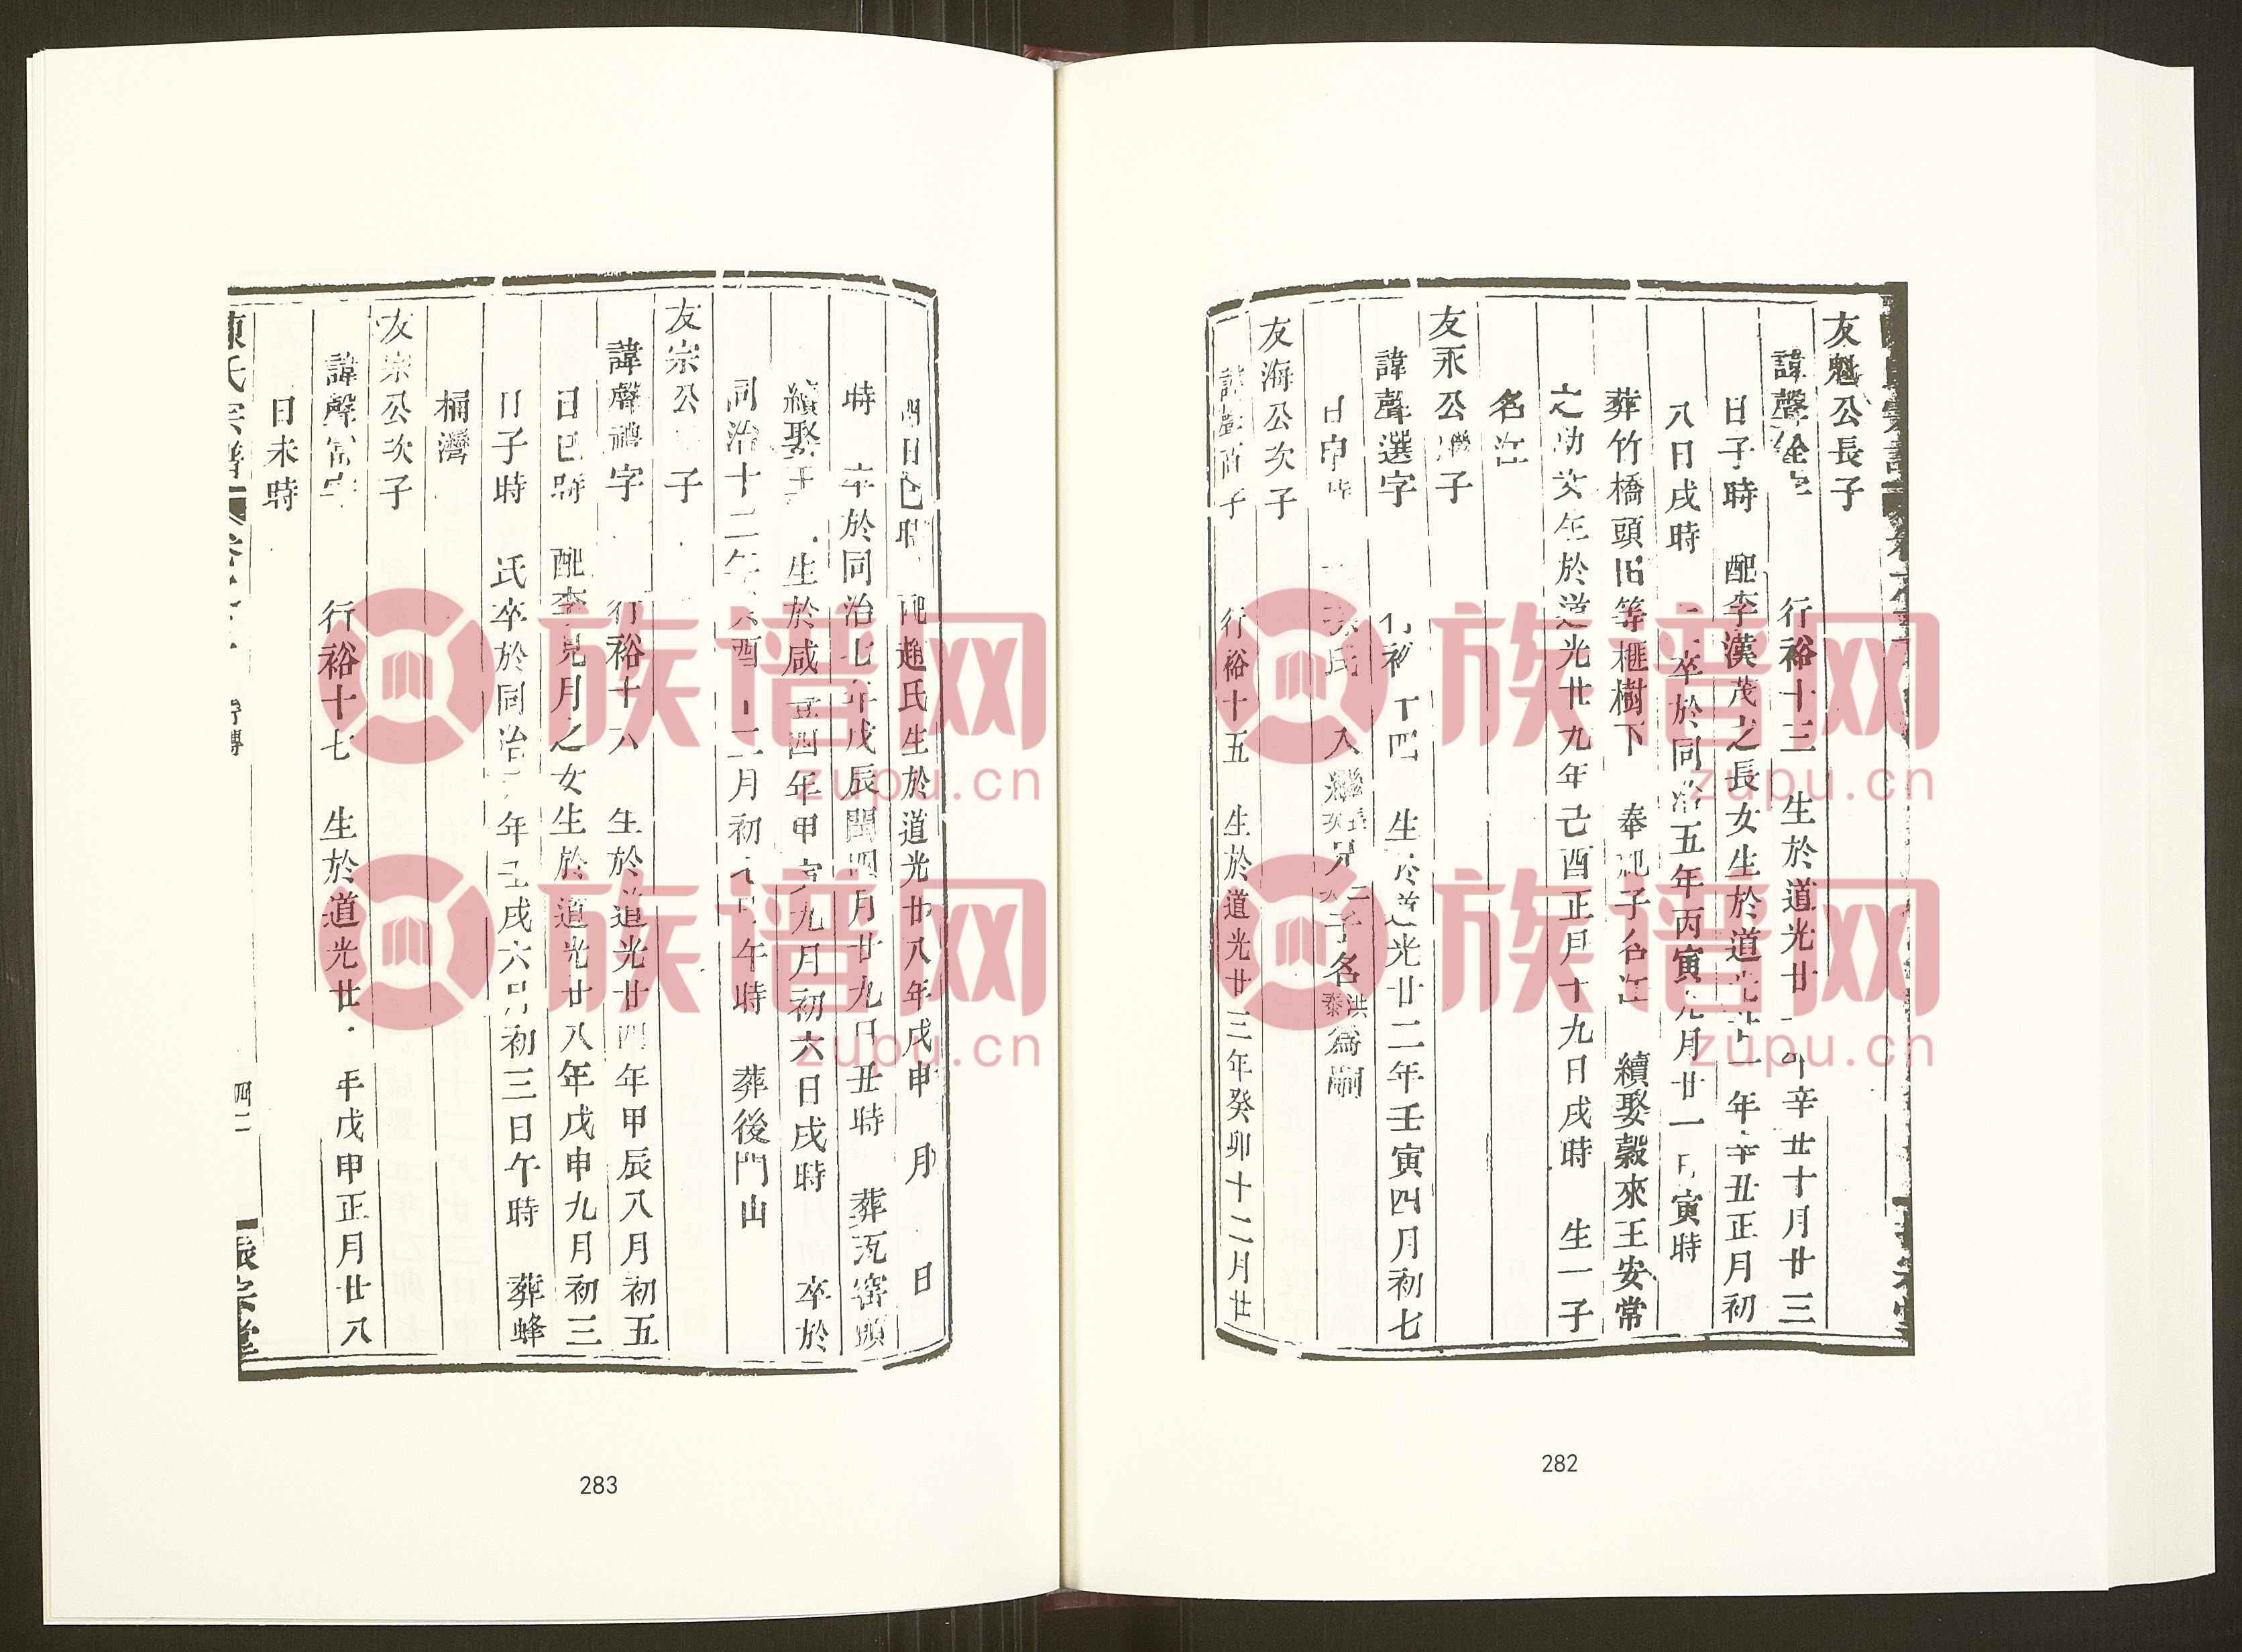 友魁公長子
諱聲銓字 行裕十三 生於道光廿 年辛丑十月廿三
日子時 配李漢茂之長女生於道光廿一年辛丑正月初
八日戌時 卒於同治五年丙寅 月廿一日寅時
葬竹橋頭旧等榧樹下 奉祀子名江 續娶穀來王安常
之幼女生於道光廿九年己酉正月十九日戌時 生一子
名江
友永公繼子
諱聲選字 行裕十四 生於道光廿二年壬寅四月初七
日申時 氏 入繼 兄 子名洪泰為嗣
友海公次子
諱 字 行裕十五 生於道光廿三年癸卯十二月廿
282
四日巳時 配趙氏生於道光廿八年戊申 月 日
時 卒於同治七年戊辰閏四月廿九日丑時 葬瓦窑頭
續娶王 生於咸豐四年甲寅九月初六日戌時 卒於
同治十二年癸酉十二月初 日午時 葬後門山
友宗公 子
諱聲禮字 行裕十六 生於道光廿四年甲辰八月初五
日巳時 配李見月之女生於道光廿八年戊申九月初三
日子時 氏卒於同治元年壬戌六月初三日午時 葬蜂
桶灣
友宗公次子
諱聲常字 行裕十七 生於道光廿 年戊申正月廿八
日未時
陳氏宗譜 卷 四二 振宗堂
283
族谱网
zupu.cn
族谱网
zupu.cn
族谱网
zupu.cn
族谱网
zupu.cn